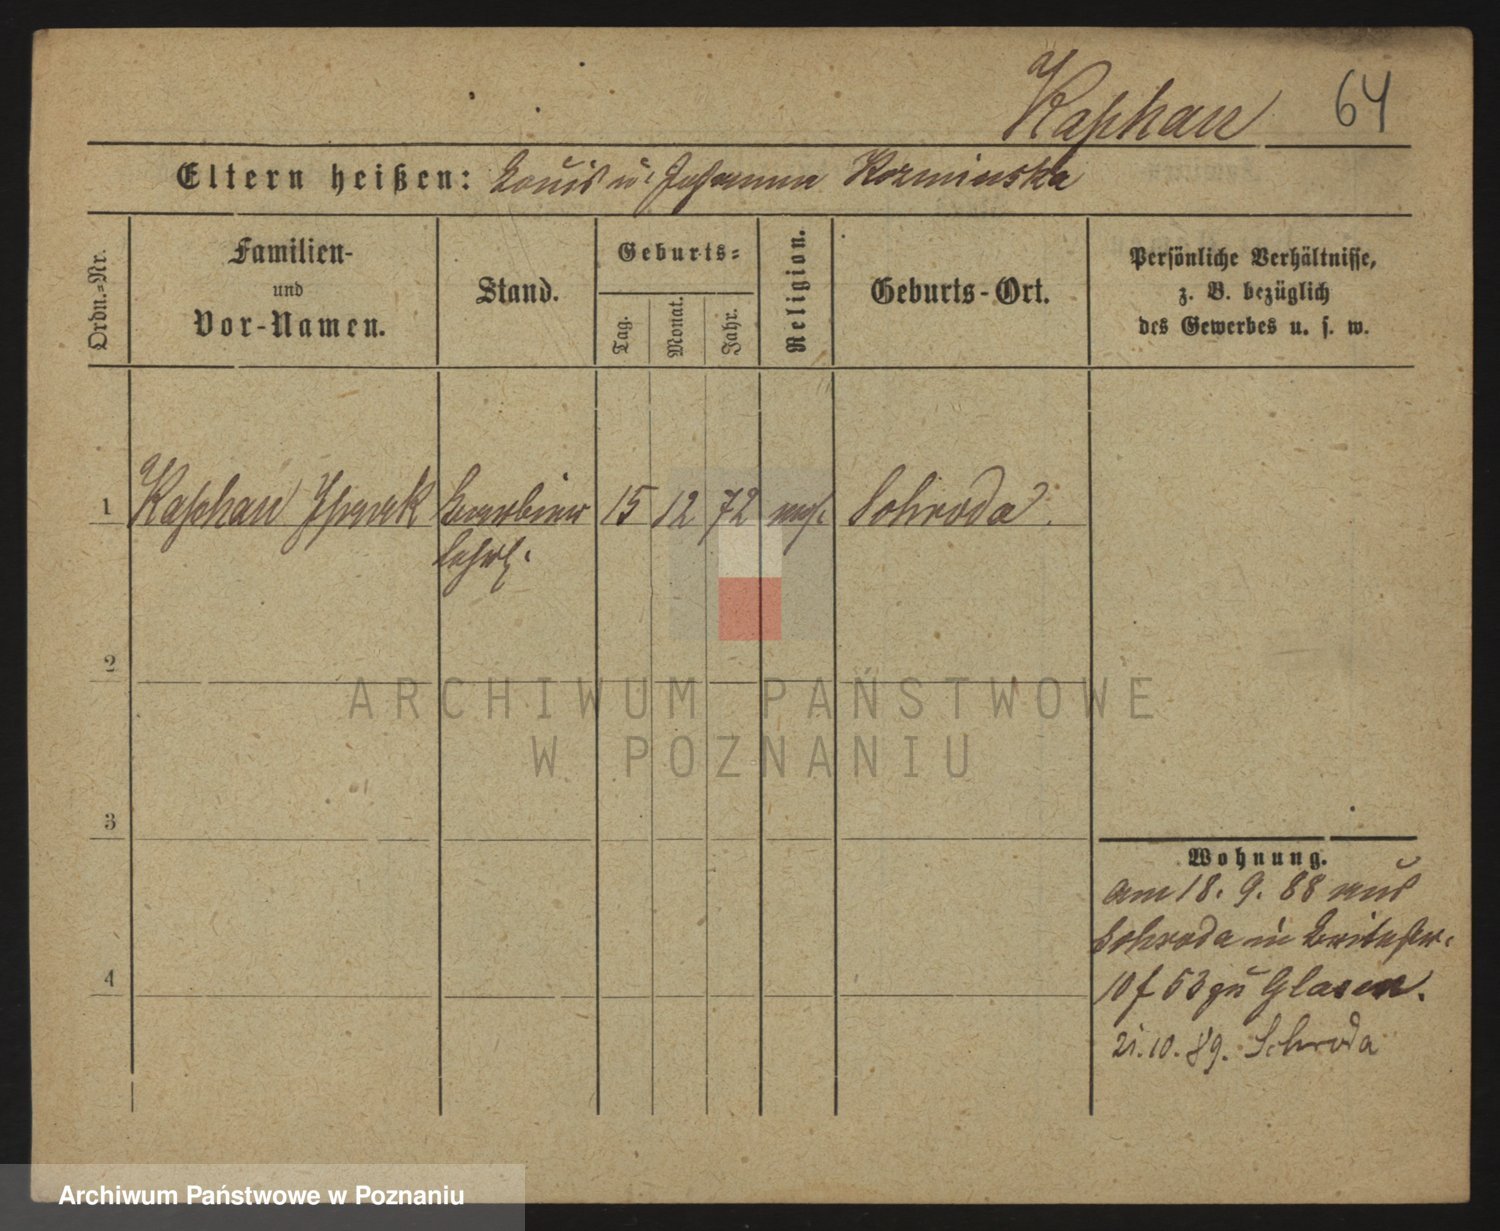 Kaphan 64
Eltern heißen: Louis u. Johanna Kozminska
Ordn.-Nr.
Familien-
und
Vor-Namen.
Stand.
Geburts-
Tag.
Monat.
Jahr.
Religion.
Geburts-Ort.
Persönliche Verhältnisse,
z. B. bezüglich
des Gewerbes u. s. w.
1 Kaphan 15 12 72 Schroda
Lehrl.
2
3
4
Wohnung.
am 18. 9. 88 aus
Schroda in
10 f 53 zu Glaser.
21.10.89. Schroda
ARCHIWUM PAŃSTWOWE
W POZNANIU
Archiwum Państwowe w Poznaniu